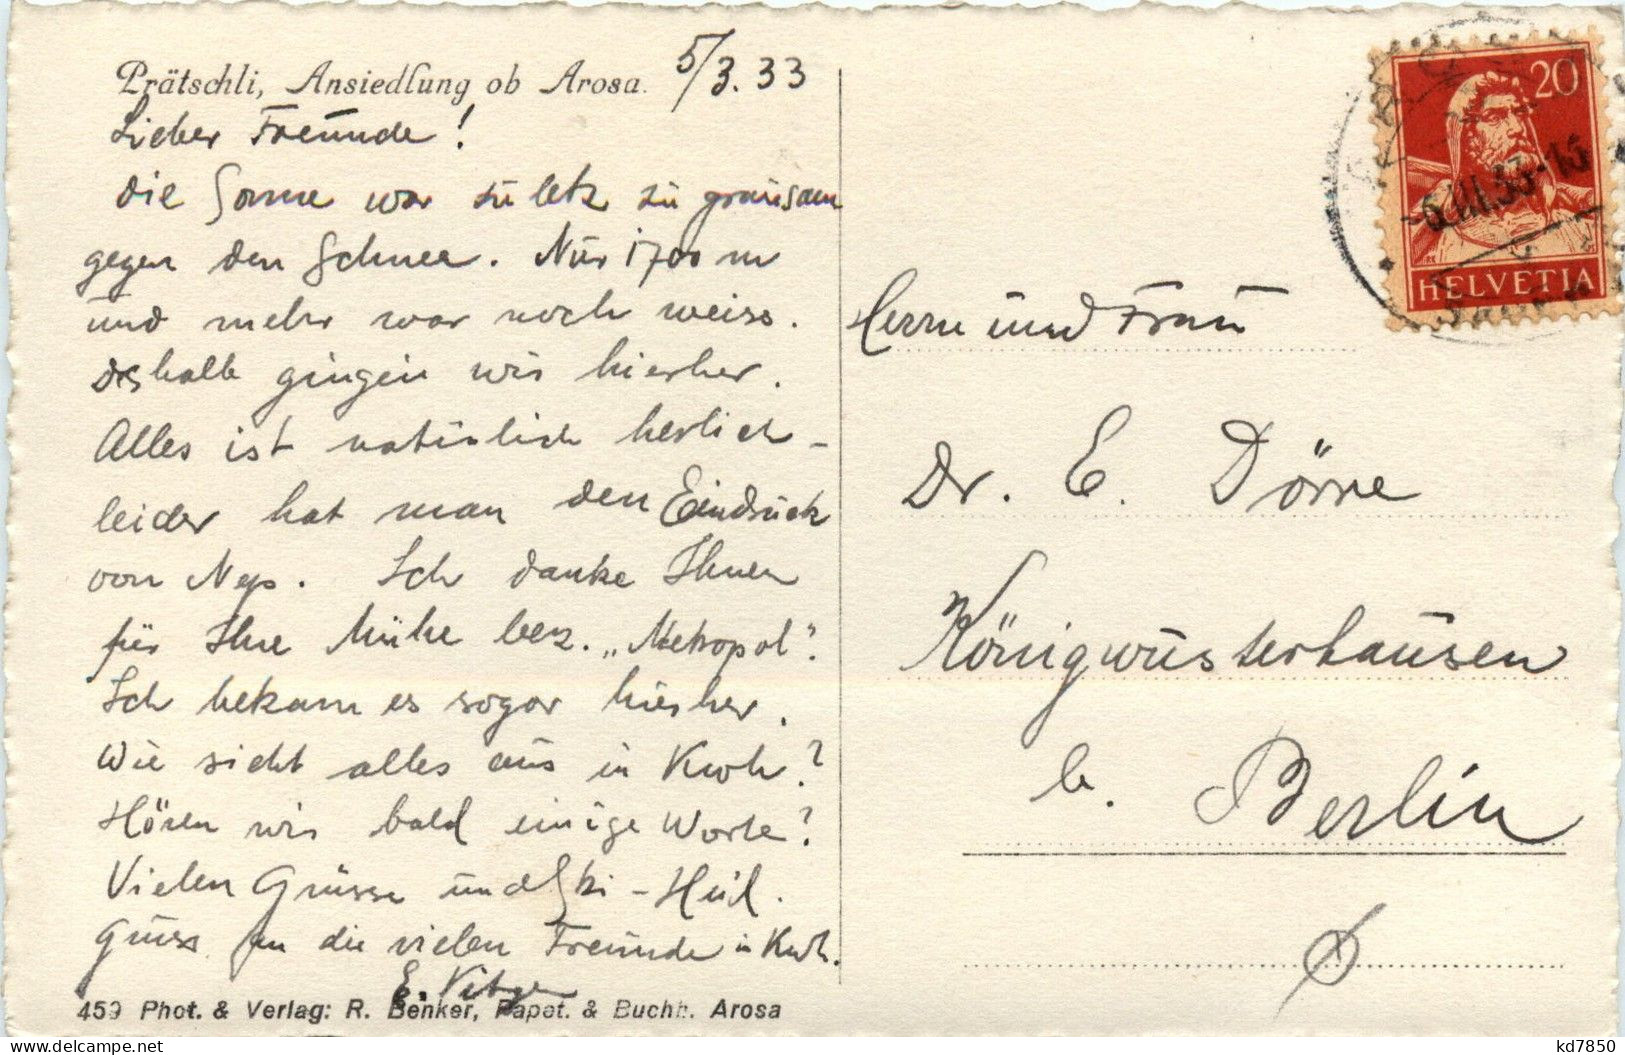 Prätschli, Ansiedlung ob Arosa. 5/3.33
Lieber Freunde!
die Sonne war zuletz zu grausam
gegen den Schnee. Nur 1700 m
und mehr war noch weiss.
deshalb gingen wir hierher.
Alles ist natürlich herlich -
leider hat man den Eindruck
von Nep. Ich danke Ihnen
für Ihre Mühe bez. „Metropol".
Ich bekam es sogar hierher.
Wie sieht alles aus in Kwh?
Hören wir bald einige Worte?
Vielen Grüsse und Ski-Heil.
Gruss an die vielen Freunde in Kwh.
E.
459 Phot. & Verlag: R. Benker, Papet. & Buchh. Arosa
20
-6.III.33-15
HELVETIA
Herrn und Frau
Dr. E. Dörre
Königwusterhausen
b. Berlin
kd7850